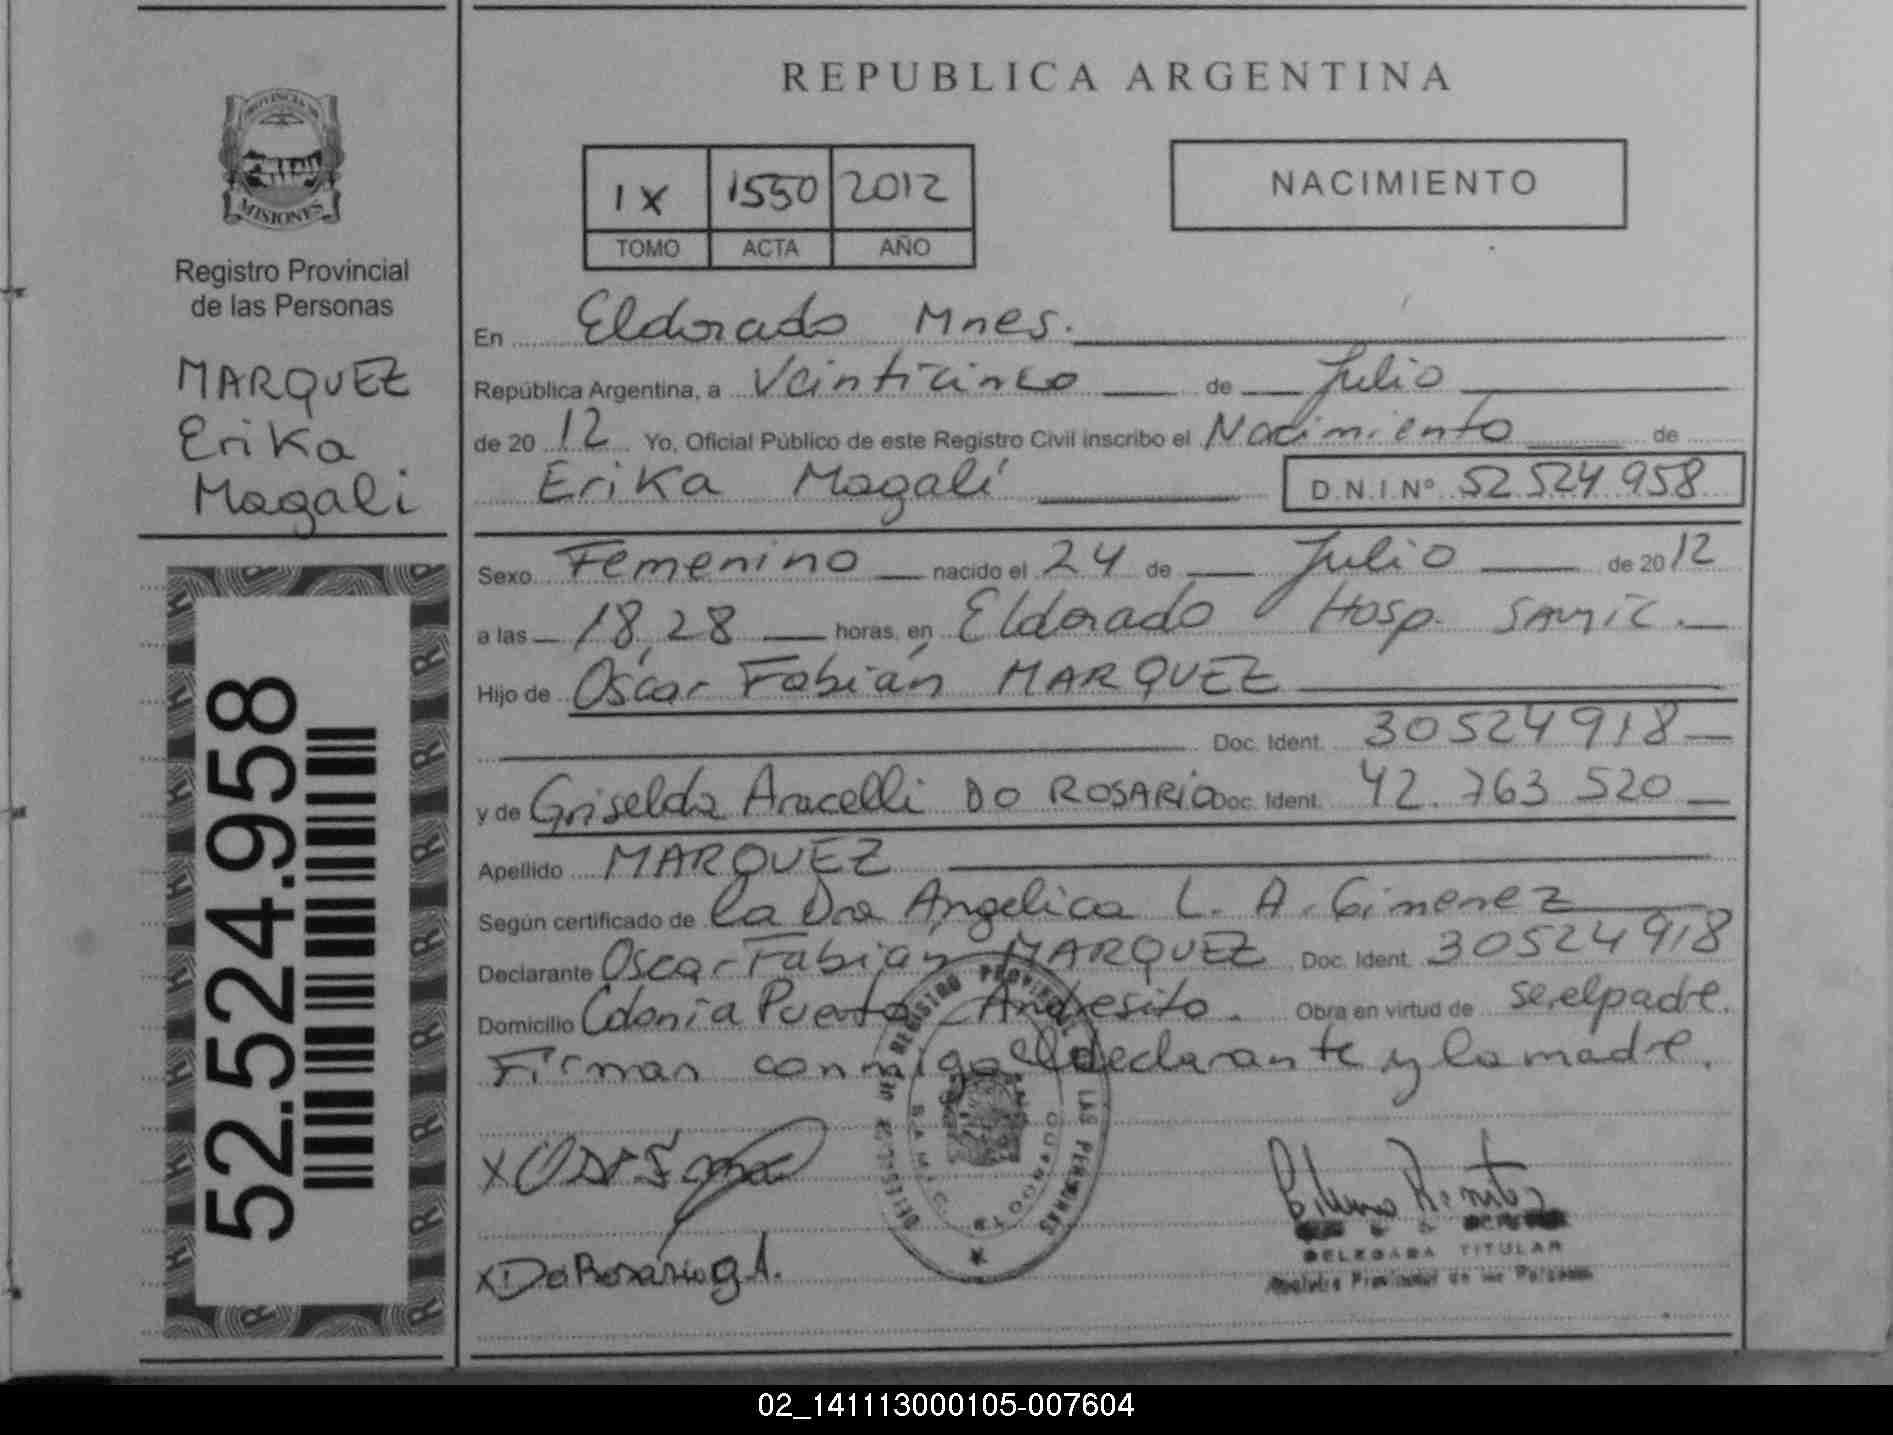 REPUBLICA ARGENTINA
PROVINCIA DE
MISIONES
Registro Provincial
de las Personas
MARQUEZ
Erika
Magali
52.524.958
IX 1550 2012
TOMO ACTA AÑO
NACIMIENTO
En Eldorado Mnes.
República Argentina, a Veinticinco de Julio
de 2012 Yo, Oficial Público de este Registro Civil inscribo el Nacimiento de
Erika Magalí D.N.I.Nº 52 524 958
Sexo Femenino nacido el 24 de Julio de 2012
a las 18,28 horas, en Eldorado Hosp. SAMIC.
Hijo de Oscar Fabián MARQUEZ
Doc. Ident. 30524918
y de Griselda Aracelli DO ROSARIO Doc. Ident. 42.763 520
Apellido MARQUEZ
Según certificado de la Dra Angelica L. A. Gimenez
Declarante Oscar Fabián MARQUEZ Doc. Ident. 30524918
Domicilio Colonia Puerto Andresito. Obra en virtud de ser el padre.
Firman conmigo el declarante y la madre.
REGISTRO PROVINCIAL DE LAS PERSONAS
X Do Rosario g A.
DELEGADA TITULAR
Registro Provincial de las Personas
02_141113000105-007604